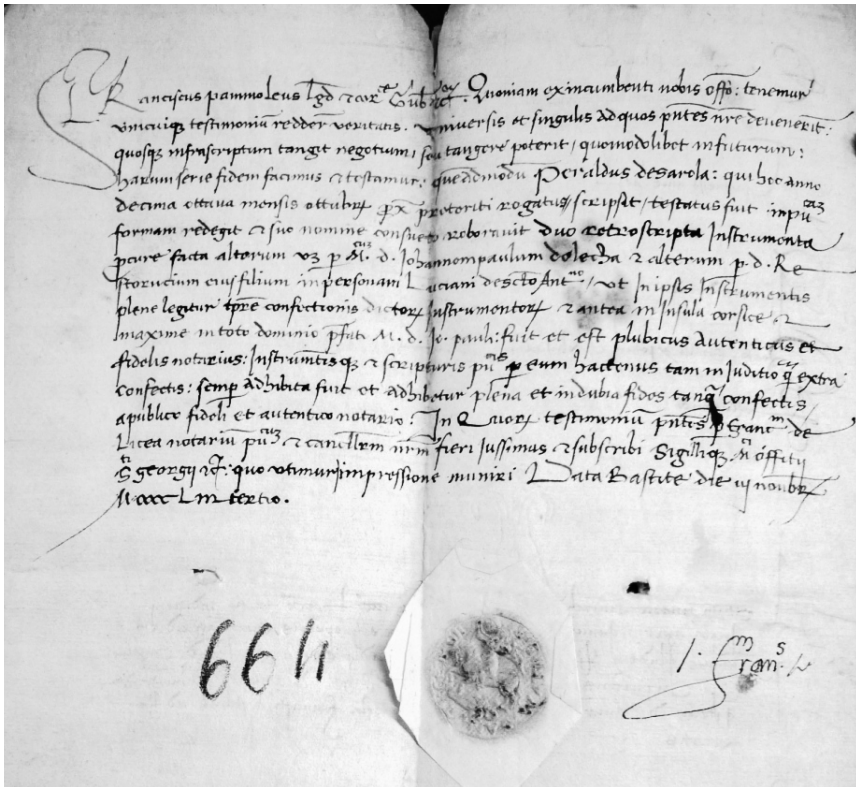 Franciscus pammoleus lgd̄ ⁊ cor.ᵉ Gub̄.ʳ Quoniam ex incumbenti nobis offō: tenemur
vnicuiqȝ testimoniū redderr̄ veritatis. vniversis et singulis ad quos pn̄tes nr̄e devenerīt:
quosqȝ infrascriptum tangit negotium, seu tangere poterit / quomodolibet in futurum:
harum serie fidem facimus ⁊ testamur. queadmodū Peraldus desarola: qui hoc anno
decima ottava mensis ottubrꝝ px̄ pretoriti rogatus / scripsit / testatus fuit in pu.ᶜᵃᵐ
formam redegit ⁊ suo nomine consueto roboravit duo retroscripta Instrumenta
pcure facta alterum vȝ p M.ᶜᵘᵐ d. Iohannompaulum dolecha ⁊ alterum p. d. Re
storucium eius filium in personam Luciani descto Ant.ⁿⁱᵒ / vt In ipsis Instrumentis
plene legitur tpr̄e confectionis dictorꝝ Instrumentorꝝ ⁊ antea in Insula corsice ⁊
maxime in toto dominio pfati M. d. Io. pauli: fuit et est plubicus Autenticus et
fidelis notarius: Instrumtisqȝ ⁊ scripturis pu.ᶜⁱˢ p eum hactenus tam in Juditio q̄ extra
confectis: semp̄ adhibita fuit et adhibetur plena et indubia fides tanq̄ confectis
apublico fideli et autentico notario. In Quorꝝ testimoniū pn̄tis p franc.ᵐ de
Licea notariū pu.ᶜᵘᵐ ⁊ cancllr̄m nr̄m fieri Jussimus ⁊ subscribi Sigilliqȝ n.ʳⁱ offitii
S.ᵗⁱ georgii quo vtimur impressione muniri Data Bastite die vj novb̄rꝝ
Mcccc Lm tertio.
664
Fran.ˢ